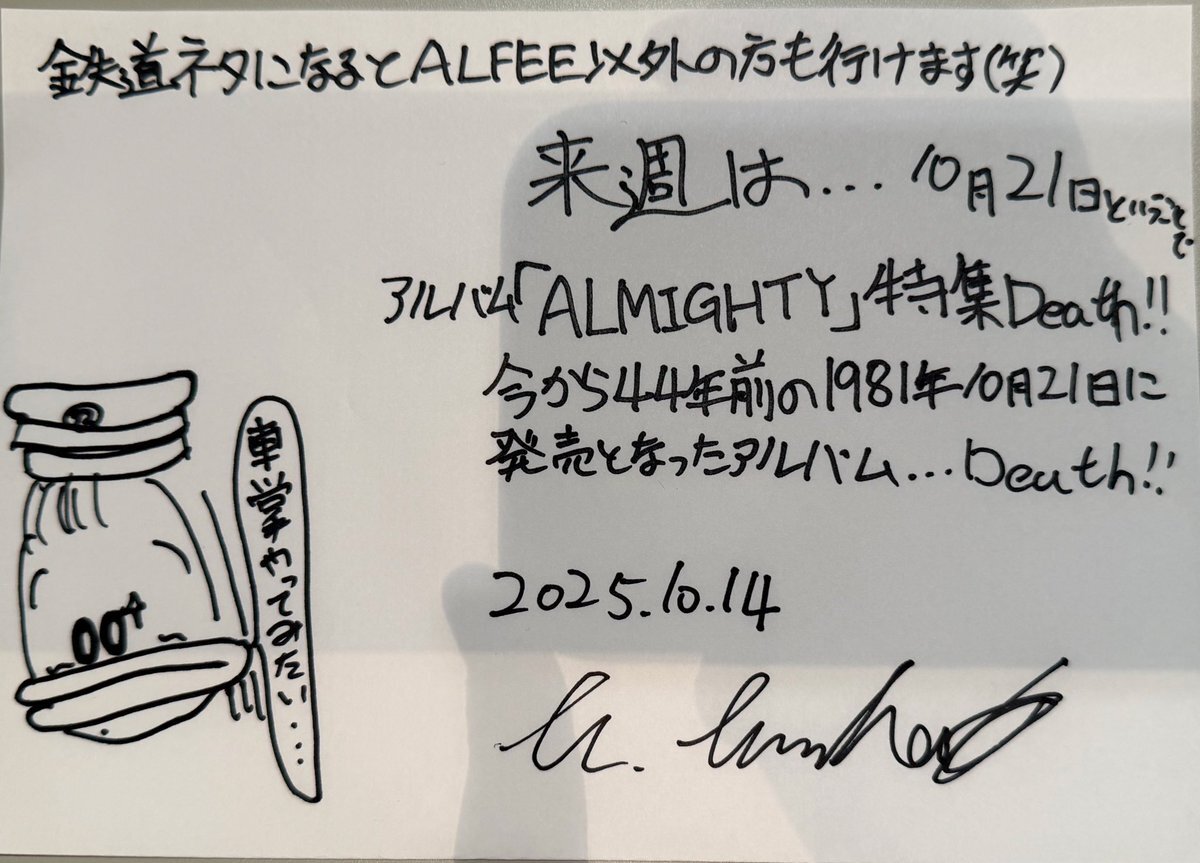 鉄道ネタになるとALFEE以外の方も行けます(笑)
来週は…10月21日ということで
アルバム「ALMIGHTY」特集Death!!
今から44年前の1981年10月21日に
発売となったアルバム…Death!!
車掌やってみたい……
2025.10.14